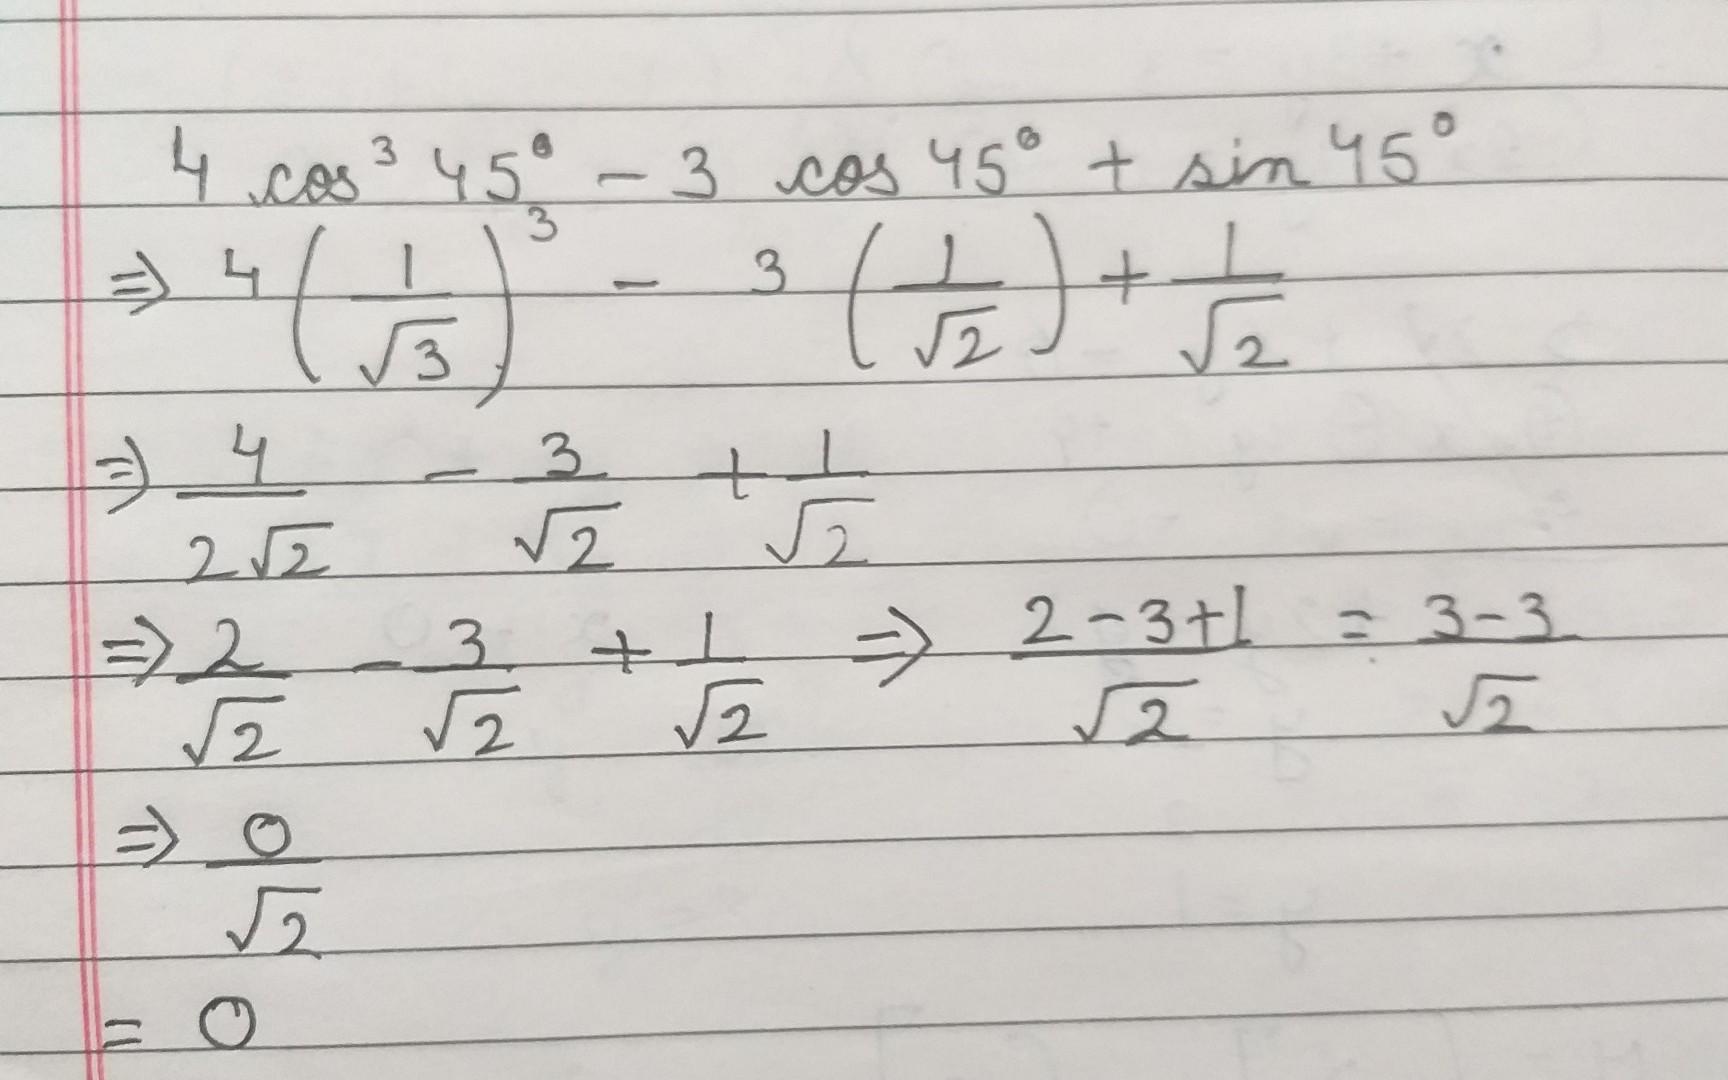 4 cos³ 45° - 3 cos 45° + sin 45°
⇒ 4 (1/√3)³ - 3 (1/√2) + 1/√2
⇒ 4/2√2 - 3/√2 + 1/√2
⇒ 2/√2 - 3/√2 + 1/√2 ⇒ 2-3+1/√2 = 3-3/√2
⇒ 0/√2
= 0